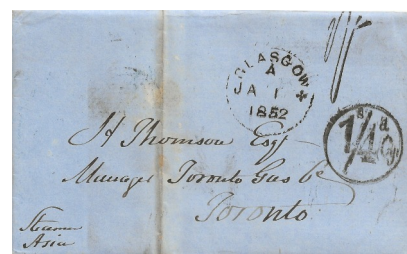 GLASGOW
A
JA 1
1852
s d
1/4
H Thomson Esqr
Manager Toronto Gas Co
Toronto
Steamer
Asia